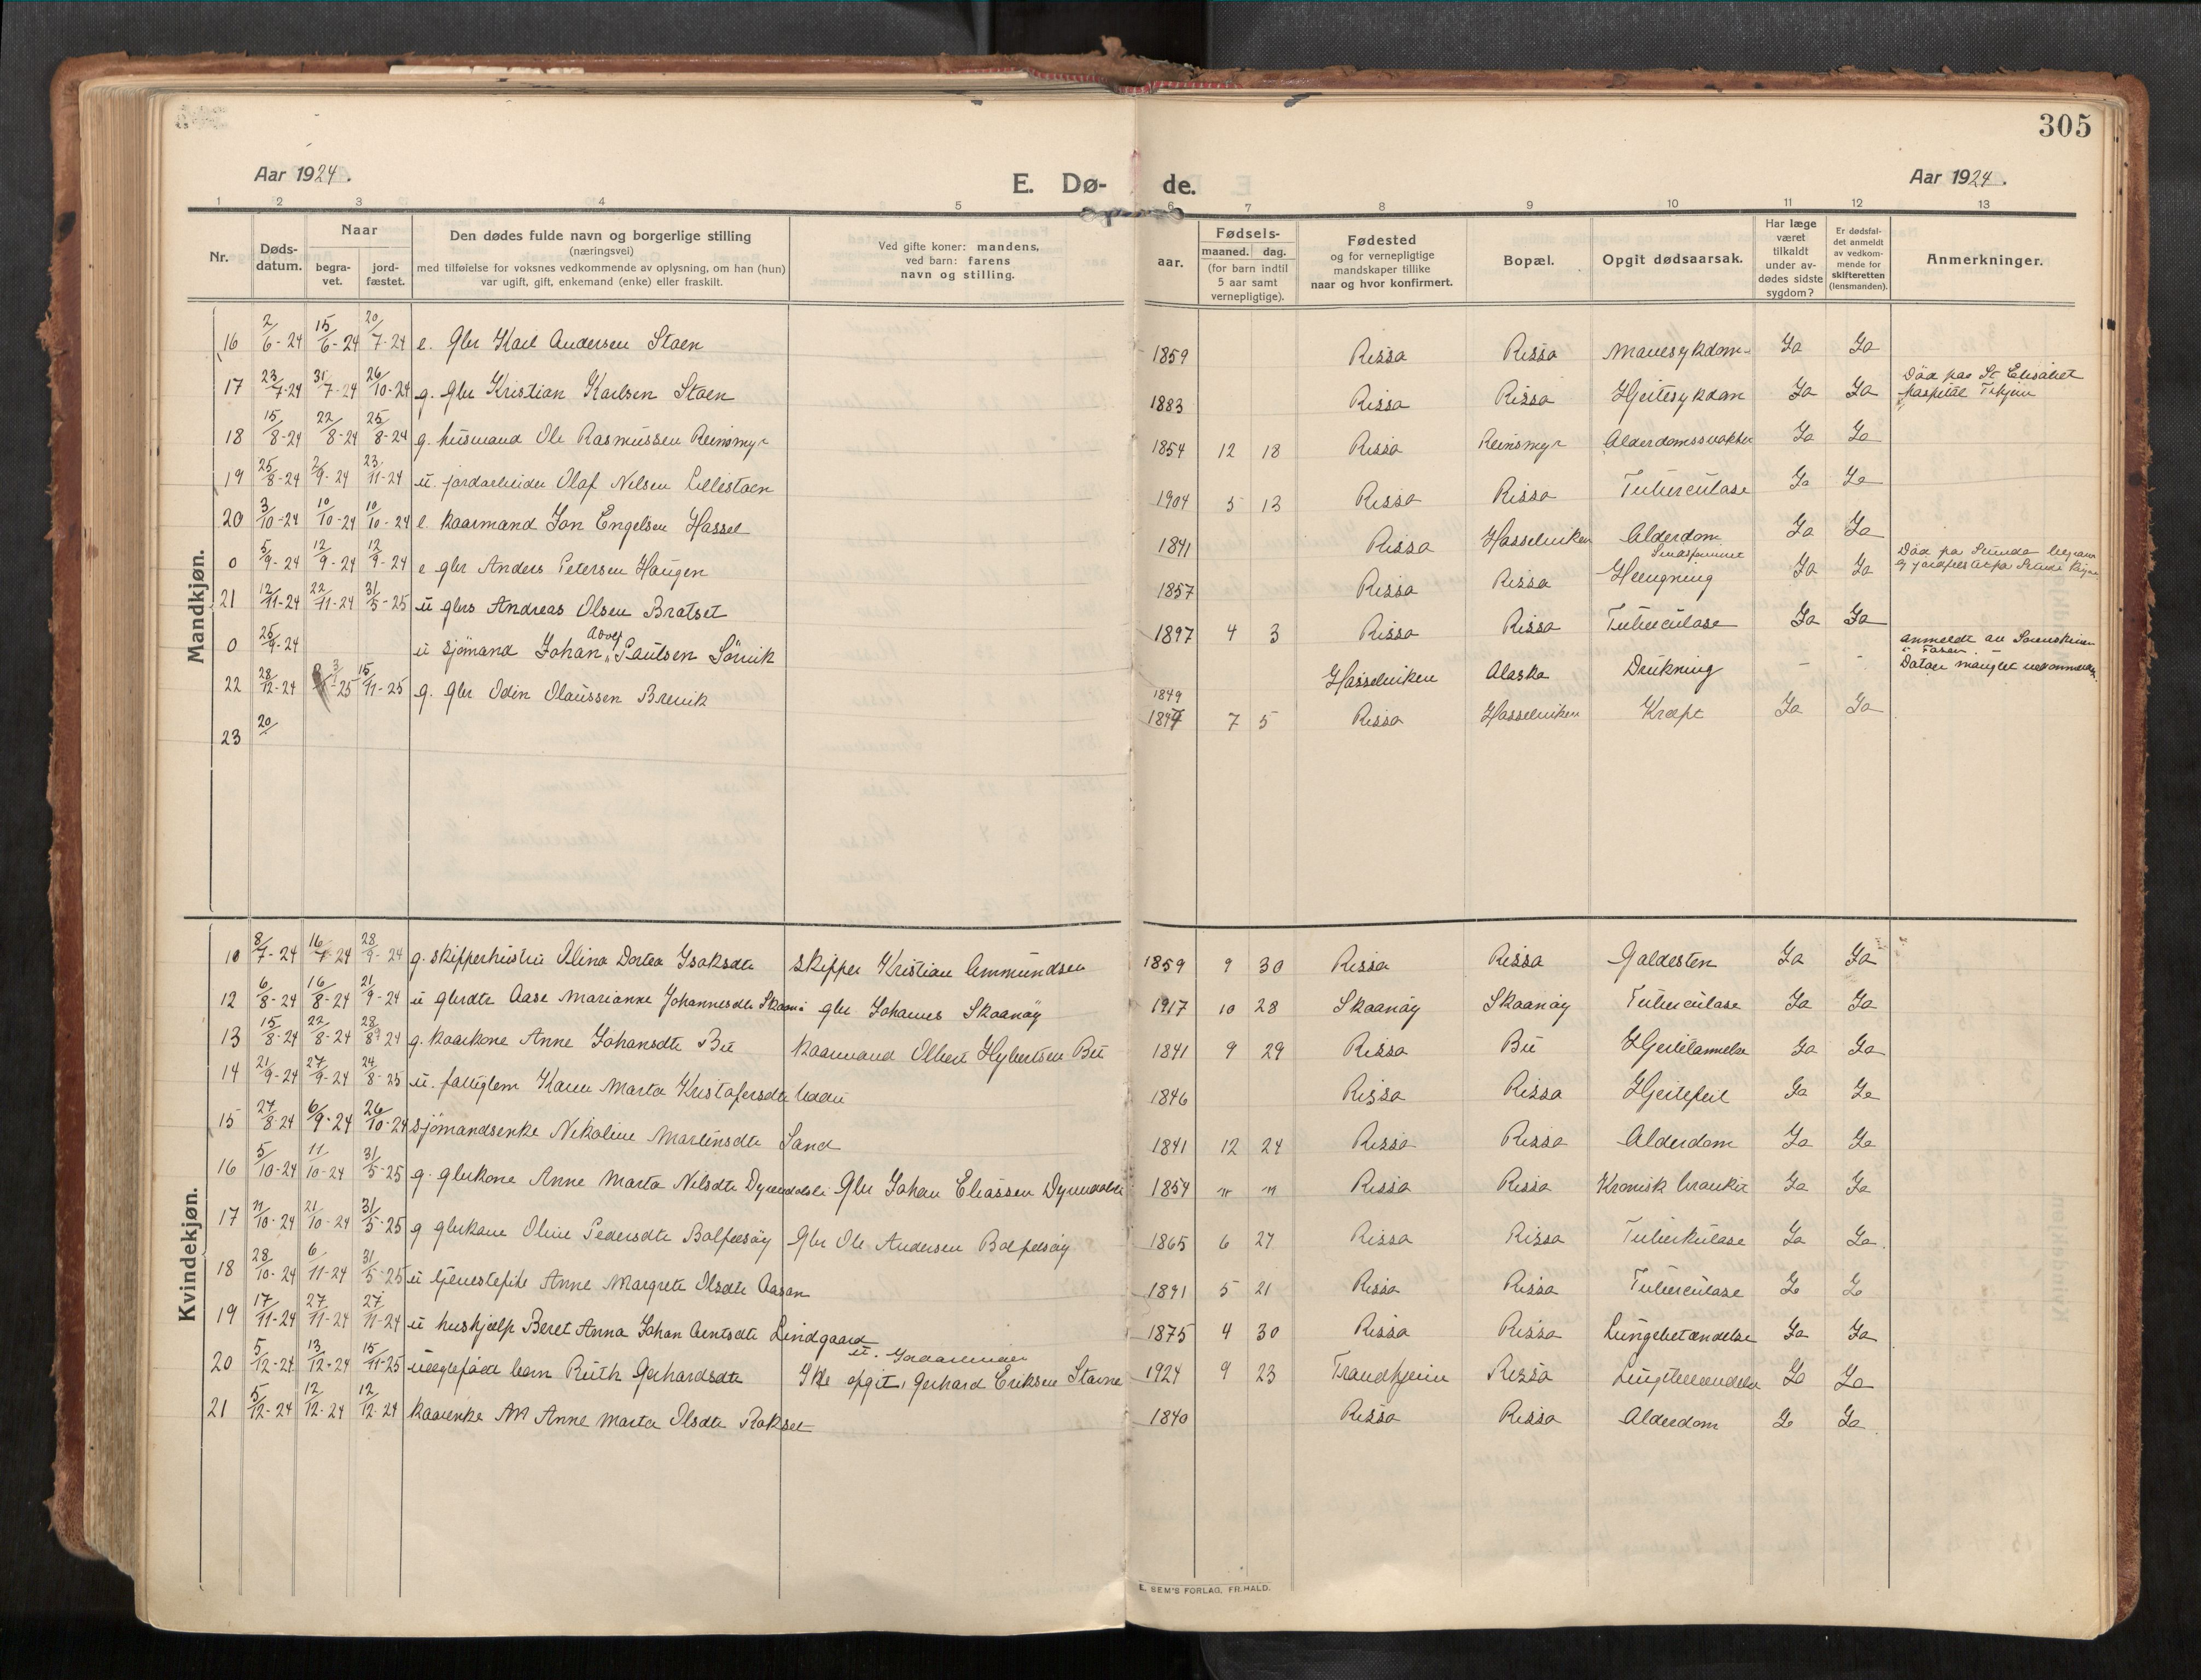 305
Aar 1924.
E. Dø- de.
Aar 1924.
1 2 3 4 5 6 7 8 9 10 11 12 13
Nr.
Døds-
datum.
Naar
begra-
vet.
jord-
fæstet.
Den dødes fulde navn og borgerlige stilling
(næringsvei)
med tilføielse for voksnes vedkommende av oplysning, om han (hun)
var ugift, gift, enkemand (enke) eller fraskilt.
Ved gifte koner: mandens,
ved barn: farens
navn og stilling.
Fødsels-
aar.
maaned. dag.
(for barn indtil
5 aar samt
vernepligtige).
Fødested
og for vernepligtige
mandskaper tillike
naar og hvor konfirmert.
Bopæl.
Opgit dødsaarsak.
Har læge
været
tilkaldt
under av-
dødes sidste
sygdom?
Er dødsfal-
det anmeldt
av vedkom-
mende for
skifteretten
(lensmanden).
Anmerkninger.
Mandkjøn.
16 2/6-24 15/6-24 20/7-24 e. Gbr Karl Andersen Staen 1859 Rissa Rissa Mavesykdom Ja Ja
17 23/7-24 31/7-24 26/10-24 g. gbr Kristian Karlsen Staen 1883 Rissa Rissa Hjertesykdom Ja Ja Död paa St Elisabet
hospital Tr.hjem
18 15/8-24 22/8-24 25/8-24 g. husmand Ole Rasmussen Reinsmyr 1854 12 18 Rissa Reinsmyr Alderdomssvakhet Ja Ja
19 25/8-24 2/9-24 23/11-24 u. jordarbeider Olaf Nilsen Lillestaen 1904 5 13 Rissa Rissa Tuberculose Ja Ja
20 3/10-24 10/10-24 10/10-24 e. kaarmand Jon Engelsen Hassel 1841 Rissa Hasselviken Alderdom Ja Ja
0 5/9-24 12/9-24 12/9-24 e gbr Anders Petersen Haugen 1857 Rissa Rissa Hengning Ja Ja
21 12/11-24 22/11-24 31/5-25 u gbrs Andreas Olsen Bratset 1897 4 3 Rissa Rissa Tuberculose Ja Ja
0 25/9-24 u sjømand Johan Adolf Paulsen Sörvik Hasselviken Alaska Drukning - -
22 28/12-24 3/-25 15/11-25 g. gbr Odin Olaussen Brevik 1849 7 5 Rissa Hasselviken Kræft Ja Ja
23 20/
Kvindekjøn.
10 8/7-24 16/7-24 28/9-24 g. skipperhustru Olina Dortea Isaksdtr skipper Kristian Ammundsen 1859 9 30 Rissa Rissa Galdesten Ja Ja
12 6/8-24 16/8-24 21/9-24 u gbrdtr Aase Marianne Johannesdtr gbr Johannes Skaanöy 1917 10 28 Skaanöy Skaanöy Tuberculose Ja Ja
13 15/8-24 22/8-24 28/8-24 g. kaarkone Anne Johansdtr Bu kaarmand Albert Hybertsen Bu 1841 9 29 Rissa Bu Hjertelammelse Ja Ja
14 21/9-24 27/9-24 24/8-25 u. fattiglem Karen Marta Kristofersdtr 1846 Rissa Rissa Hjertefeil Ja Ja
15 27/8-24 6/9-24 26/10-24 sjømandsenke Nikoline Martinsdtr Sand 1841 12 24 Rissa Rissa Alderdom Ja Ja
16 5/10-24 11/10-24 31/5-25 g. gbrkone Anne Marta Nilsdtr Dyrendalsli Gbr Johan Eliassen Dyrendalsli 1854 " " Rissa Rissa Kronisk bronkit Ja Ja
17 11/10-24 21/10-24 31/5-25 g gbrkone Oline Pedersdtr Gbr Ole Andersen 1865 6 27 Rissa Rissa Tuberkulose Ja Ja
18 28/10-24 6/11-24 31/5-25 u tjenestepike Anne Margrete Olsdtr Aasan 1891 5 21 Rissa Rissa Tuberculose Ja Ja
19 17/11-24 27/11-24 27/11-24 u hushjælp Beret Anna Johan Arntsdtr Lindgaard 1875 4 30 Rissa Rissa Lungebetændelse Ja Ja
20 5/12-24 13/12-24 15/11-25 uegtefødt barn Ruth Gerhardsdtr Ikke opgit, Gerhard Eriksen Stavne 1924 9 23 Trondhjem Rissa Lungebetændelse Ja Ja
21 5/12-24 12/12-24 12/12-24 kaarenke Anne Marta Olsdtr Rokset 1840 Rissa Rissa Alderdom Ja Ja
E. SEM'S FORLAG, FR.HALD.